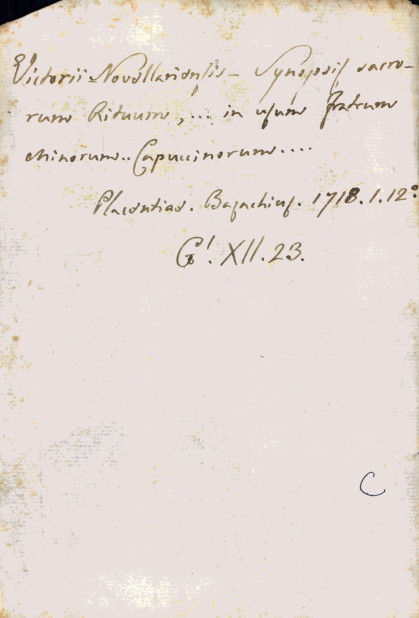 Victorii Novellariensis - Synopsis sacro-
rum Rituum, ... in usum fratrum
Minorum.. Capuccinorum....
Placentiae. Bazachius. 1718. 1. 12º
XII. 23.
C